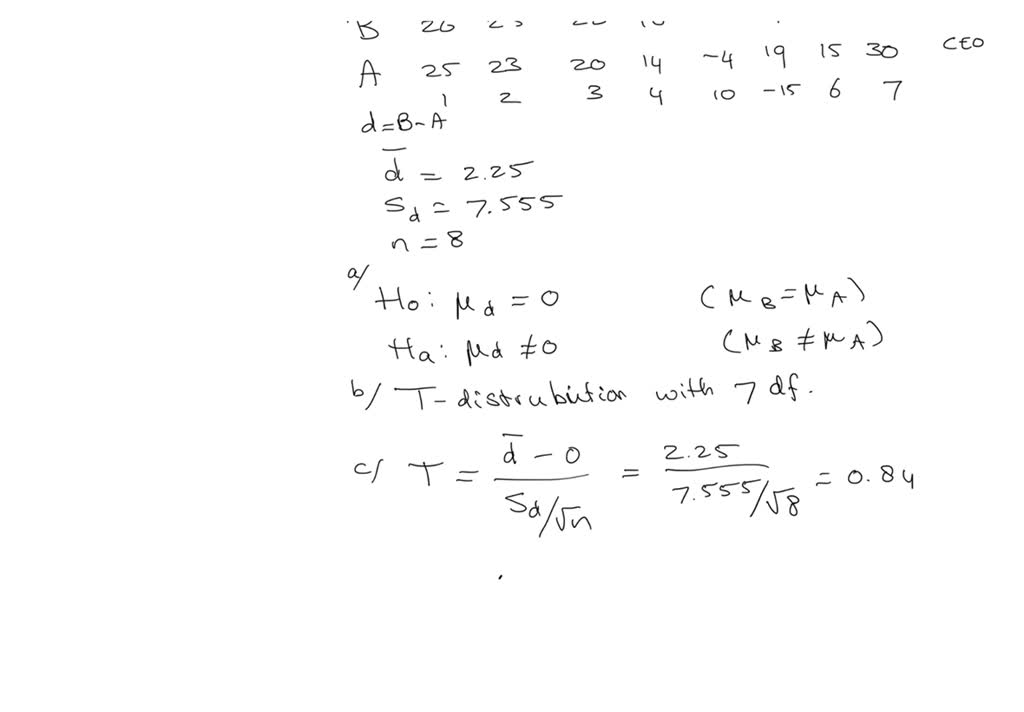 B 26
A 25 23 20 14 -4 19 15 30 CEO
1 2 3 4 10 -15 6 7
d=B-A
d̅ = 2.25
Sd = 7.555
n = 8
a/
Ho: μd = 0 (μB = μA)
Ha: μd ≠ 0 (μB ≠ μA)
b/ T-distrubution with 7 df.
c/ T = (d̅ - 0) / (Sd/√n) = 2.25 / (7.555/√8) = 0.84